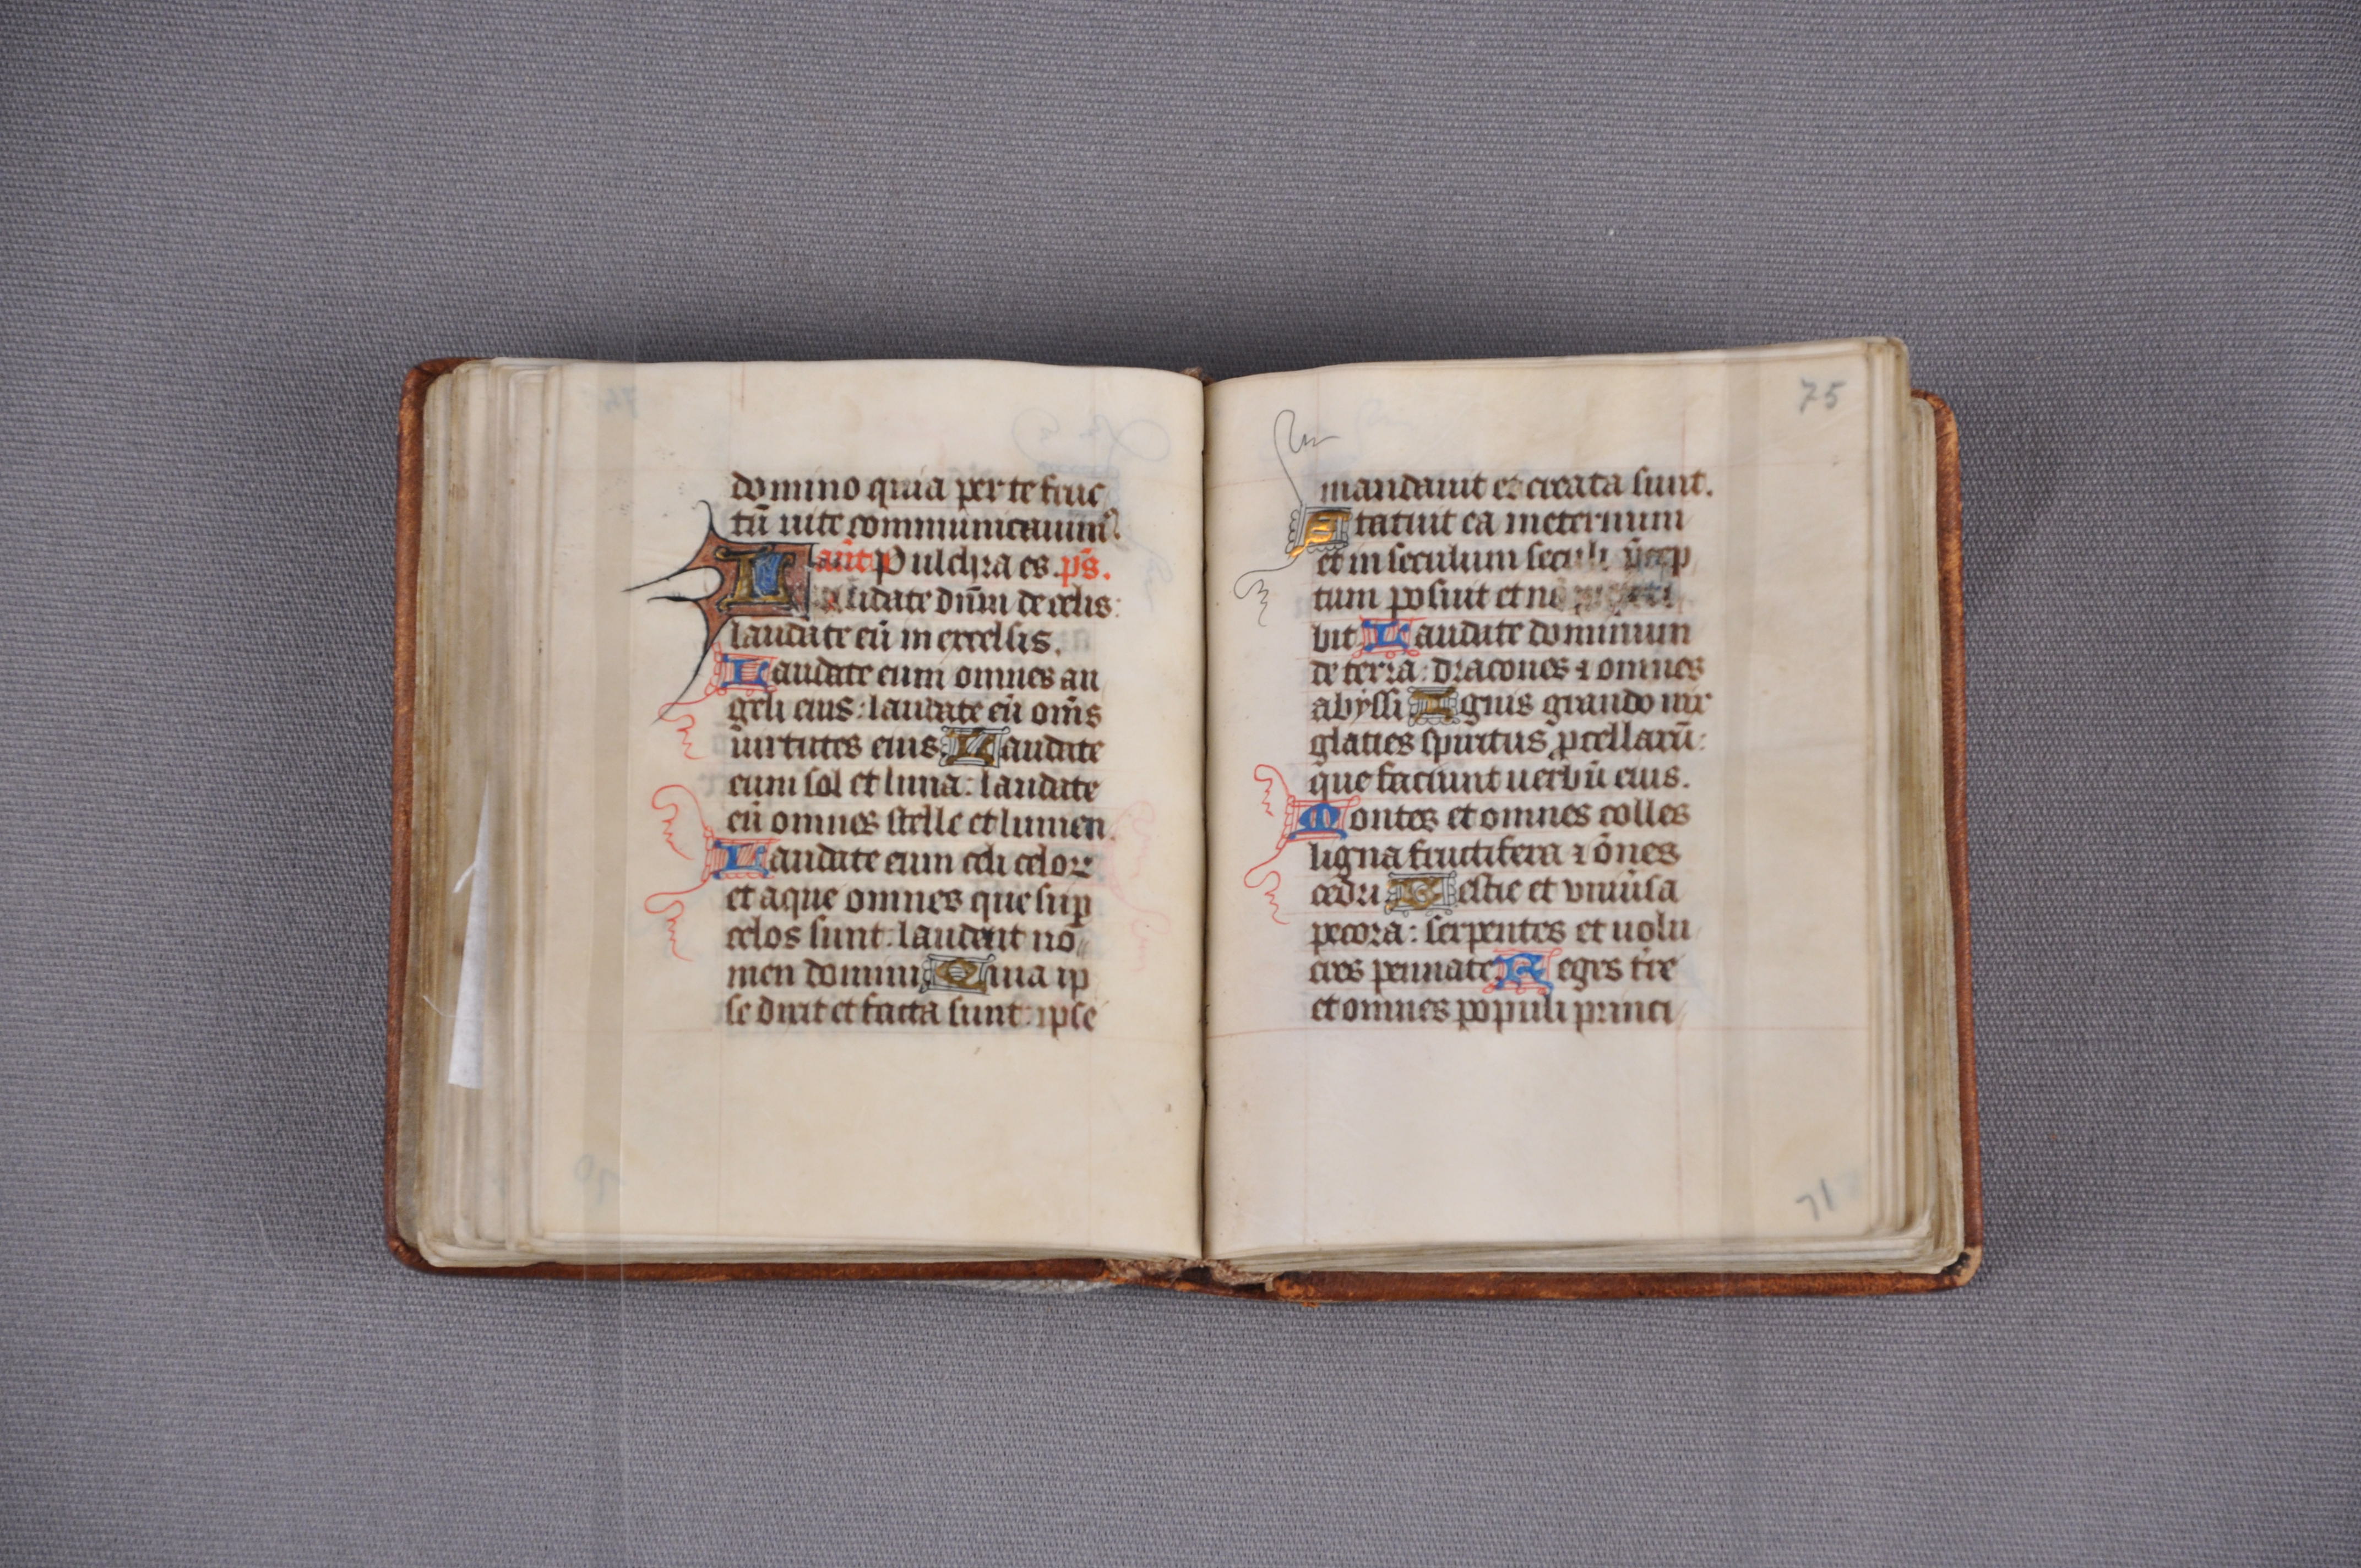 domino quia per te fruc
tū uite communicauim᷒.
añt Pulchra es. ps̄.
Laudate dn̄m de celis:
laudate eū in excelsis.
Laudate eum omnes an
geli eius: laudate eū om̄s
uirtutes eius Laudate
eum sol et luna: laudate
eū omnes stelle et lumen.
Laudate eum celi celoꝝ
et aque omnes que sup
celos sunt: laudent no
men domini Quia ip
se dixit et facta sunt: ipse
75
mandauit et creata sunt.
Statuit ea ineternum
et in seculum seculi p̄cep
tum posuit et nō
bit Laudate dominum
de terra: dracones ⁊ omnes
abyssi Ignis grando nix
glacies spiritus ꝓcellarū:
que faciunt uerbū eius.
Montes et omnes colles
ligna fructifera ⁊ ōnes
cedri Bestie et vniūsa
pecora: serpentes et uolu
cres pennate Reges tr̄e
et omnes populi princi
71